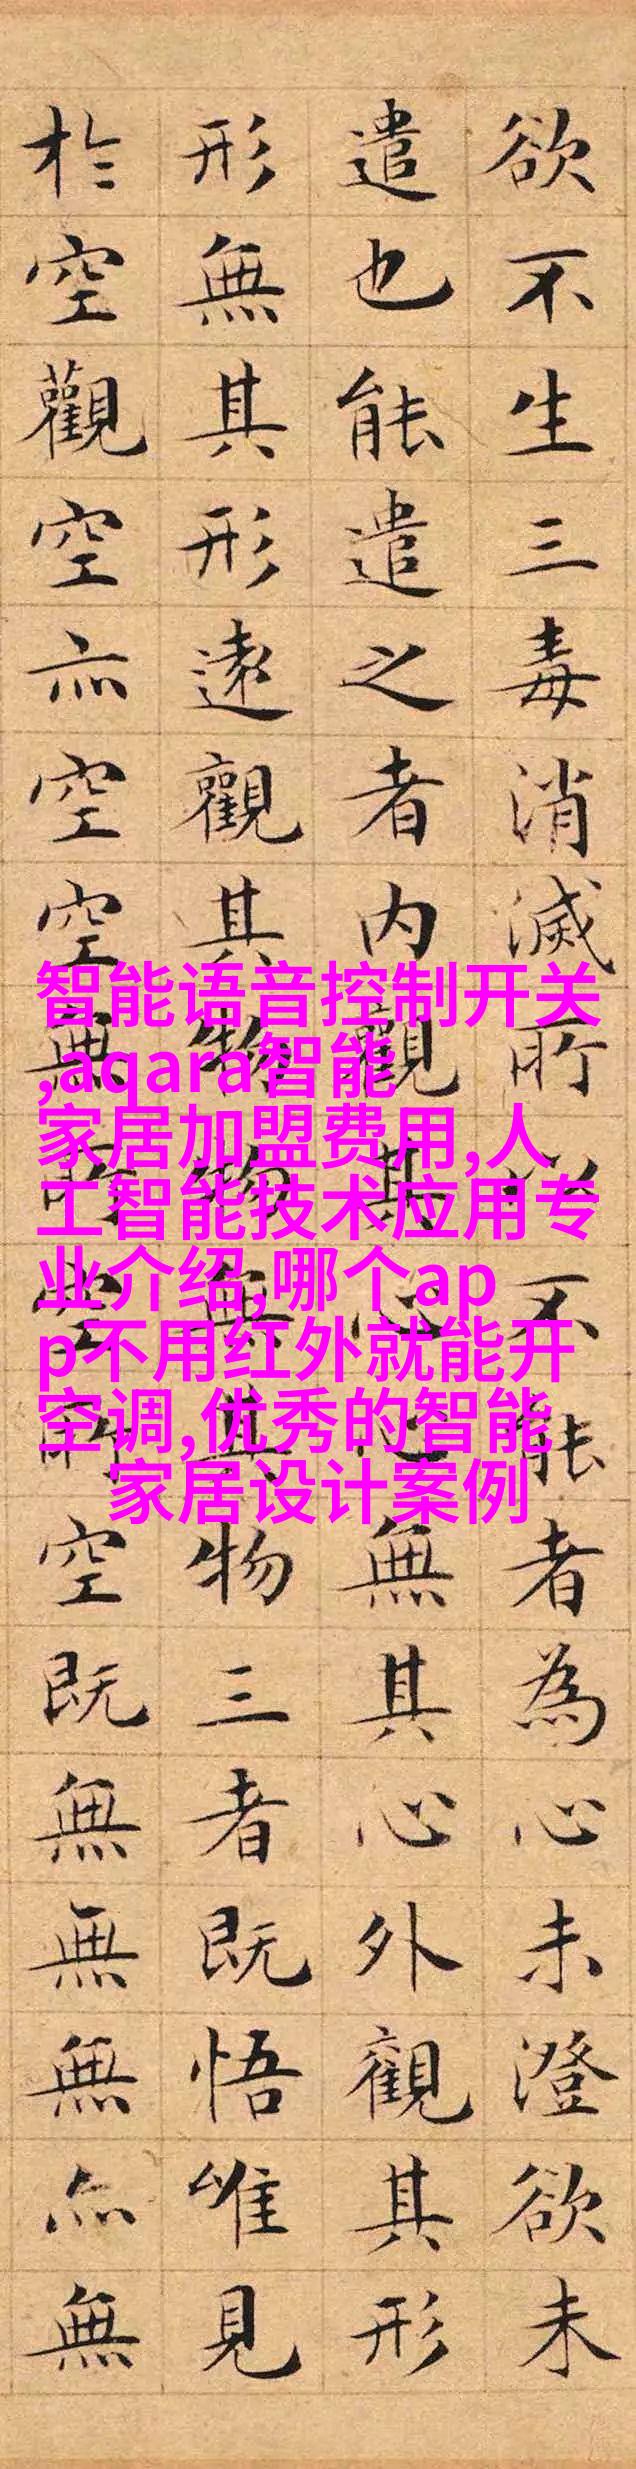 欲不生三毒消滅所以不能者為心未澄欲未
遣也能遣之者内觀其心心無其心外觀其形
形無其形遠觀其物物無其物三者既悟唯見
於空觀空亦空空無所空所空既無無無亦無
智能语音控制开关
,aqara智能
家居加盟费用,人
工智能技术应用专
业介绍,哪个ap
p不用红外就能开
空调,优秀的智能
家居设计案例